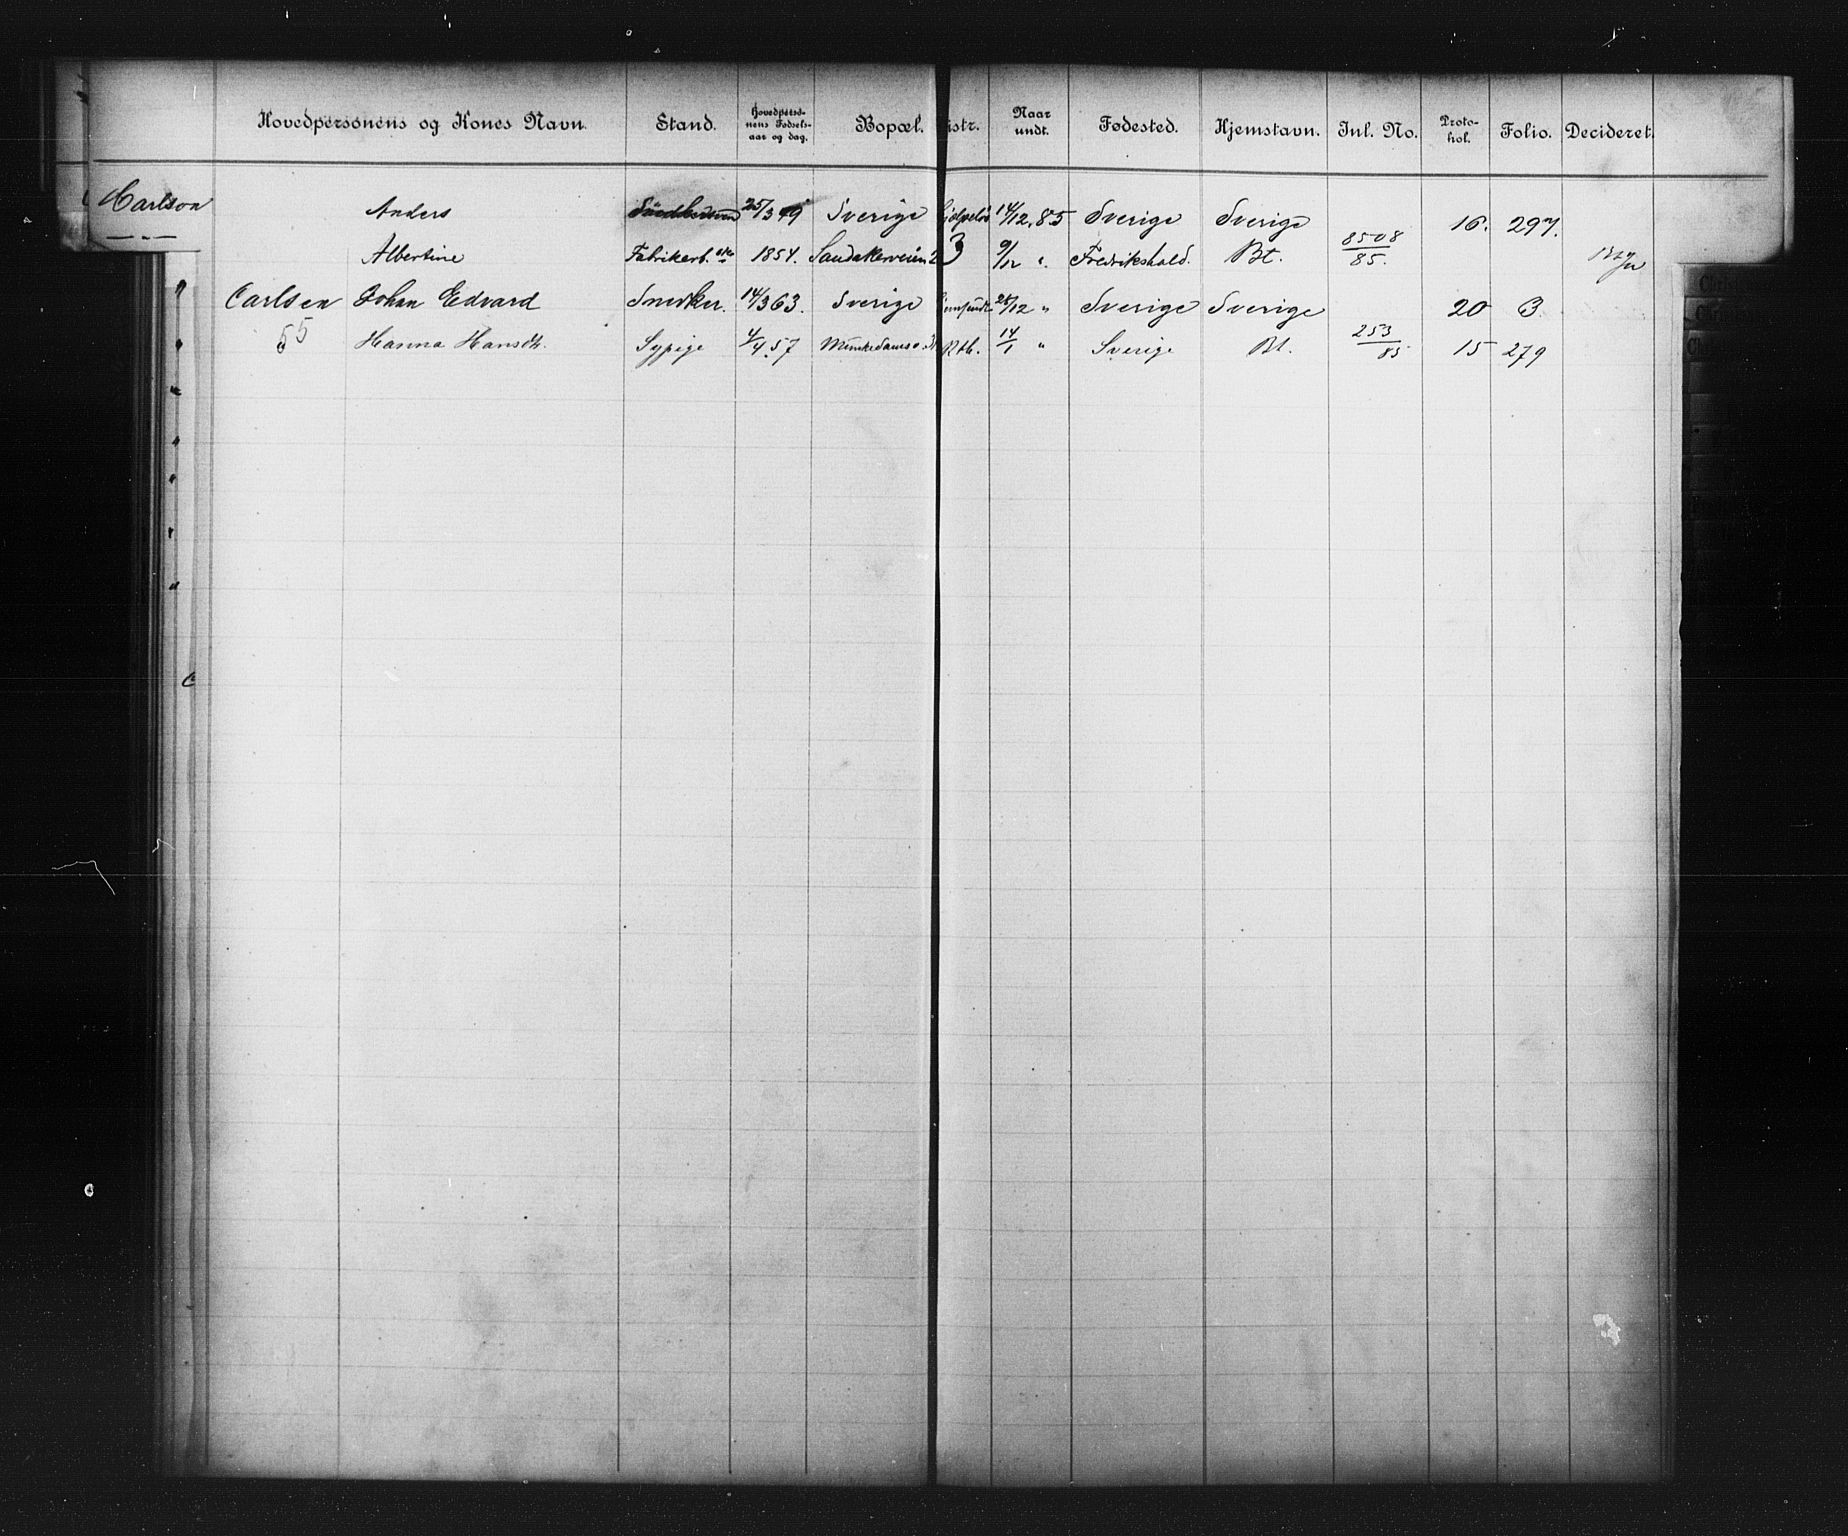 Hovedpersonens og Kones Navn. Stand. Hovedpersonens Fødselsaar og dag. Bopæl. Distr. Naar undt. Fødested. Hjemstavn. Inl. No. Protokol. Folio. Decideret.
Carlson Anders 25/3 49 Sverige 14/12.85 Sverige Sverige 16. 297.
— " — Albertine Fabrikarb. 1854. Sandakerveien 2 3 9/12 " Fredrikshald. Bt. 8508/85.
Carlsen Johan Edvard Snedker. 14/3 63. Sverige 28/12 " Sverige Sverige 20 3.
55 Hanna Hansdtr. Sypige 4/4.57 Munkedamsv. Rtb. 14/1 " Sverige Bt. 253/85. 15 279